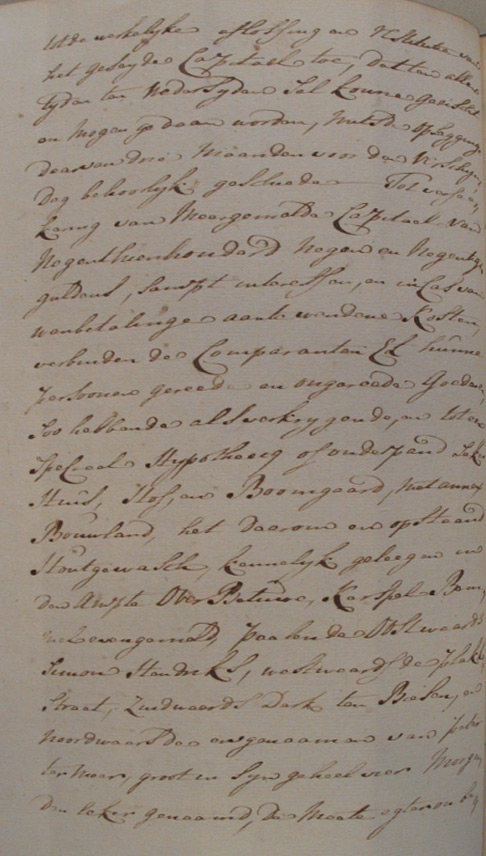 tot de werkelijke aflossing en restitutie van
het geseyde Capitael toe, dat ten allen
tyden ten wedersyden sal konnen geeischt
en mogen gedaan worden, mits de opsegginge
daar van drie Maanden voor den Verschyn
dag behoorlyk geschiede Tot verse
kering van Meergemelde Capitaal van
Negenthienhonderd Negen en Negentig
guldens, sampt interessen, en in Cas van
wanbetalinge aante wendene Kosten,
verbinden de Comparanten Ed hunne
persoonen gereede en ongereede Goederen
Soo hebbende als verkrygende, en tot een
Speciael Hypotheecq of onderpand Seker
Huis, Hof, en Boomgaard, met annex
Bouwland, het daarom en op staand
Houtgewasch, kennelyk geleegen in
den Ampte Over Betuwe, Karspel Bem
mel evengemeld, paalende Oostwaards
Simon Hendriks, westwaards de plak
Straat, Zuidwaards Derk ten Biesen, en
Noordwaarts de ervgenaamen van Peter
ter Meer, groot in syn geheel vier Morgen
den leker genaamd, die Maate egter on be